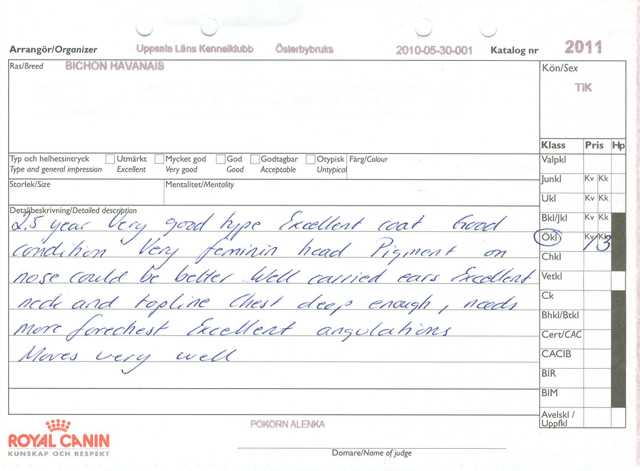 Arrangör/Organizer Uppsala Läns Kennelklubb Österbybruks 2010-05-30-001 Katalog nr 2011
Ras/Breed BICHON HAVANAIS Kön/Sex
TIK
Klass Pris Hp
Typ och helhetsintryck Utmärkt Mycket god God Godtagbar Otypisk Färg/Colour Valpkl
Type and general impression Excellent Very good Good Acceptable Untypical
Junkl Kv Kk
Storlek/Size Mentalitet/Mentality
Ukl Kv Kk
Detaljbeskrivning/Detailed description
Bkl/Jkl Kv Kk
2,5 year Very good type Excellent coat Good
Ökl Kv Kk 1/3
condition Very feminin head Pigment on
Chkl
nose could be better Well carried ears Excellent
Vetkl
neck and topline Chest deep enough, needs
Ck
Bhkl/Btkl
more forechest Excellent angulations
Cert/CAC
Moves very well
CACIB
BIR
BIM
Avelskl /
Uppfkl
POKORN ALENKA
ROYAL CANIN
KUNSKAP OCH RESPEKT
Domare/Name of judge